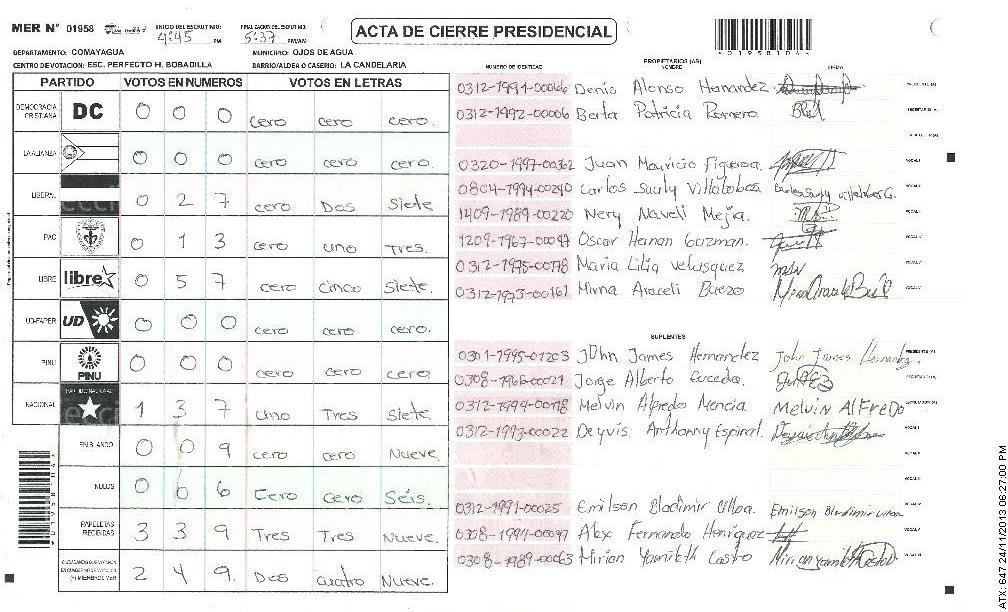 MER N° 01958
INICIO DEL ESCRUTINIO: 4:45 PM
FINALIZACION DEL ESCRUTINIO: 5:37 PM/AM
ACTA DE CIERRE PRESIDENCIAL
DEPARTAMENTO: COMAYAGUA
MUNICIPIO: OJOS DE AGUA
CENTRO DE VOTACION: ESC. PERFECTO H. BOBADILLA
BARRIO/ALDEA O CASERIO: LA CANDELARIA
PARTIDO VOTOS EN NUMEROS VOTOS EN LETRAS
DEMOCRACIA CRISTIANA DC 0 0 0 cero cero cero.
LA ALIANZA 0 0 0 cero cero cero.
LIBERAL 0 2 7 cero Dos Siete
PAC 0 1 3 cero uno Tres.
LIBRE libre 0 5 7 cero cinco Siete.
UD-FAPER UD 0 0 0 cero cero cero.
PINU PINU 0 0 0 cero cero cero
NACIONAL 1 3 7 Uno Tres Siete
EN BLANCO 0 0 9 cero cero Nueve
NULOS 0 0 6 Cero Cero Séis.
PAPELETAS RECIBIDAS 3 3 9 Tres Tres Nueve.
2 4 9. Dos cuatro Nueve.
PROPIETARIOS (AS)
NUMERO DE IDENTIDAD NOMBRE FIRMA
Denis Alonso Hernandez
0312-1992-00006 Berta Patricia Romero
0320-1997-00362 Juan Mauricio Figueroa.
0804-1994-00240 Carlos Sauly Villalobos
1409-1989-00220 Nery Naveli Mejia.
Oscar Hernan Guzman.
Maria Lilia Velasquez
0312-1973-00161 Mirna Araceli Buezo
SUPLENTES
0301-1995-01203 John James Hernandez John James Hernandez
Jorge Alberto
Melvin Alfredo Mencia. Melvin AlFreDo
0312-1993-00022 Deyvis Anthonny Espinal.
0312-1991-00025 Emilson Bladimir Ulloa. Emilson Bladimir Ulloa
Alex Fernando Henriquez
0308-1989-00063 Mirian Yamileth Castro
ATX: 647 24/11/2013 06:27:00 PM